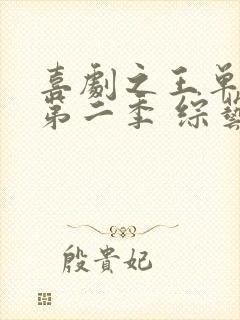 喜劇之王單
第二季 綜藝
殷貴妃